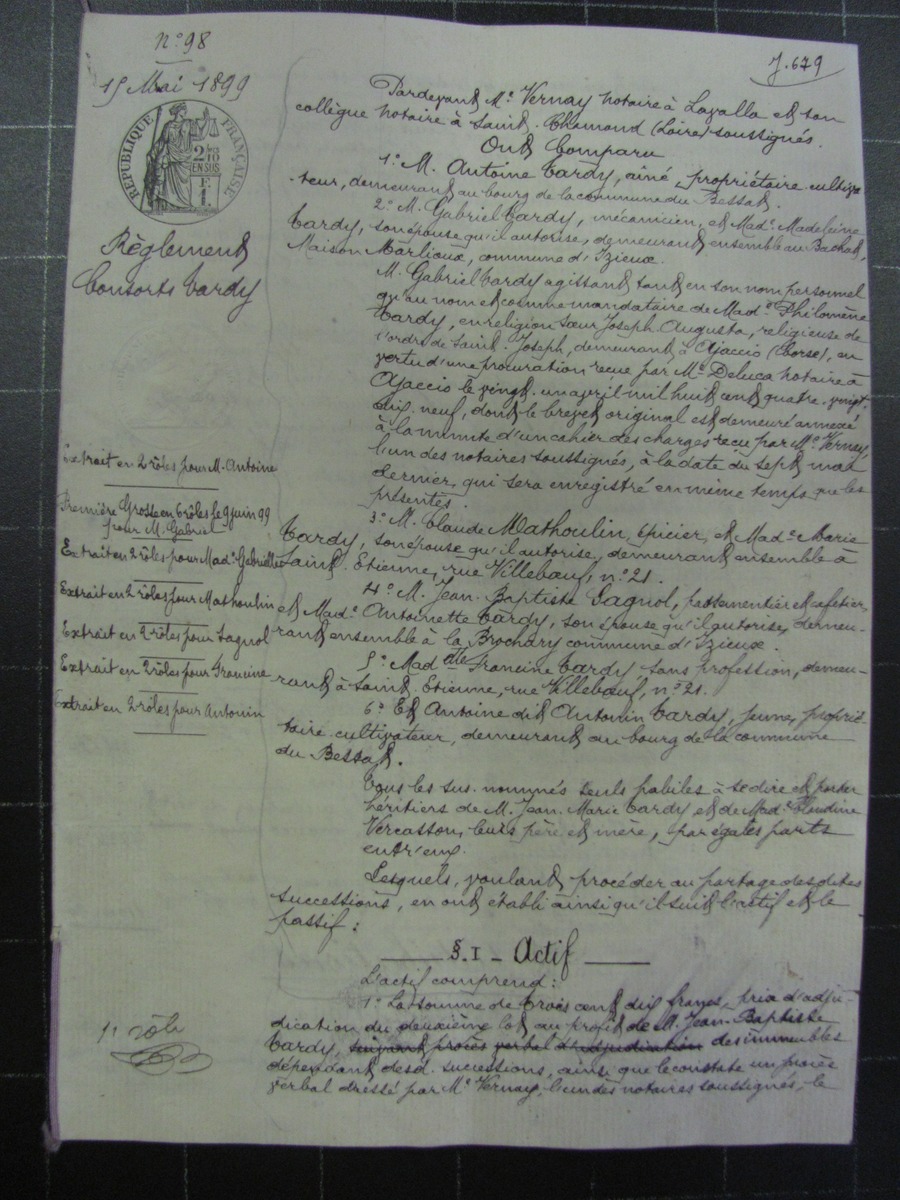 n° 98
J. 679
15 Mai 1899
RÉPUBLIQUE FRANÇAISE
2/10
EN SUS
Règlement
Consorts Tardy
Pardevant Me Vernay notaire à Lavalla et son
collègue notaire à Saint-Chamond (Loire) soussignés.
Ont Comparu
1° M. Antoine Tardy, ainé, propriétaire-cultiva-
teur, demeurant au bourg de la commune du Bessat.
2° M. Gabriel Tardy, mécanicien, et Made Madeleine
Tardy, son épouse qu'il autorise, demeurant ensemble au Bachat,
Maison Marlioux, commune d'Izieux.
M. Gabriel Tardy agissant tant en son nom personnel
qu'au nom et comme mandataire de Made Philomène
Tardy, en religion Sœur Joseph Augusta, religieuse de
l'ordre de Saint-Joseph, demeurant à Ajaccio (Corse), en
vertu d'une procuration reçue par Me Deluca notaire à
Ajaccio le vingt-un avril mil huit cent quatre-vingt-
dix-neuf, dont le brevet original est demeuré annexé
à la minute d'un cahier des charges reçu par Me Vernay,
l'un des notaires soussignés, à la date du sept mai
dernier, qui sera enregistré en même temps que les
présentes.
3° M. Claude Mathoulin, épicier, et Made Marie
Tardy, son épouse qu'il autorise, demeurant ensemble à
Saint-Etienne, rue Villebœuf, n° 21.
4° M. Jean-Baptiste Gagnol, passementier et cafetier,
et Made Antoinette Tardy, son épouse qu'il autorise, demeu-
rant ensemble à la Brochary commune d'Izieux.
5° Madlle Francine Tardy, sans profession, demeu-
rant à Saint-Etienne, rue Villebœuf, n° 21.
6° Et Antoine dit Antonin Tardy, jeune, proprié-
taire-cultivateur, demeurant au bourg de la commune
du Bessat.
Tous les sus-nommés seuls habiles à se dire et porter
héritiers de M. Jean-Marie Tardy et de Made Claudine
Vercasson, leurs père et mère, par égales parts
entr'eux.
Lesquels, voulant procéder au partage desdites
successions, en ont établi ainsi qu'il suit l'actif et le
passif :
§. I - Actif
L'actif comprend :
1° La somme de trois cent dix francs, prix d'adju-
dication du deuxième lot au profit de M. Jean-Baptiste
Tardy, suivant procès verbal d'adjudication des immeubles
dépendant desd. successions, ainsi que le constate un procès
verbal dressé par Me Vernay, l'un des notaires soussignés, le
Extrait en 2 rôles pour M. Antoine
Première Grosse en 6 rôles le 9 juin 99
pour M. Gabriel
Extrait en 2 rôles pour Made Gabrielle
Extrait en 2 rôles pour Mathoulin
Extrait en 2 rôles pour Gagnol
Extrait en 2 rôles pour Francine
Extrait en 2 rôles pour Antonin
1r rôle